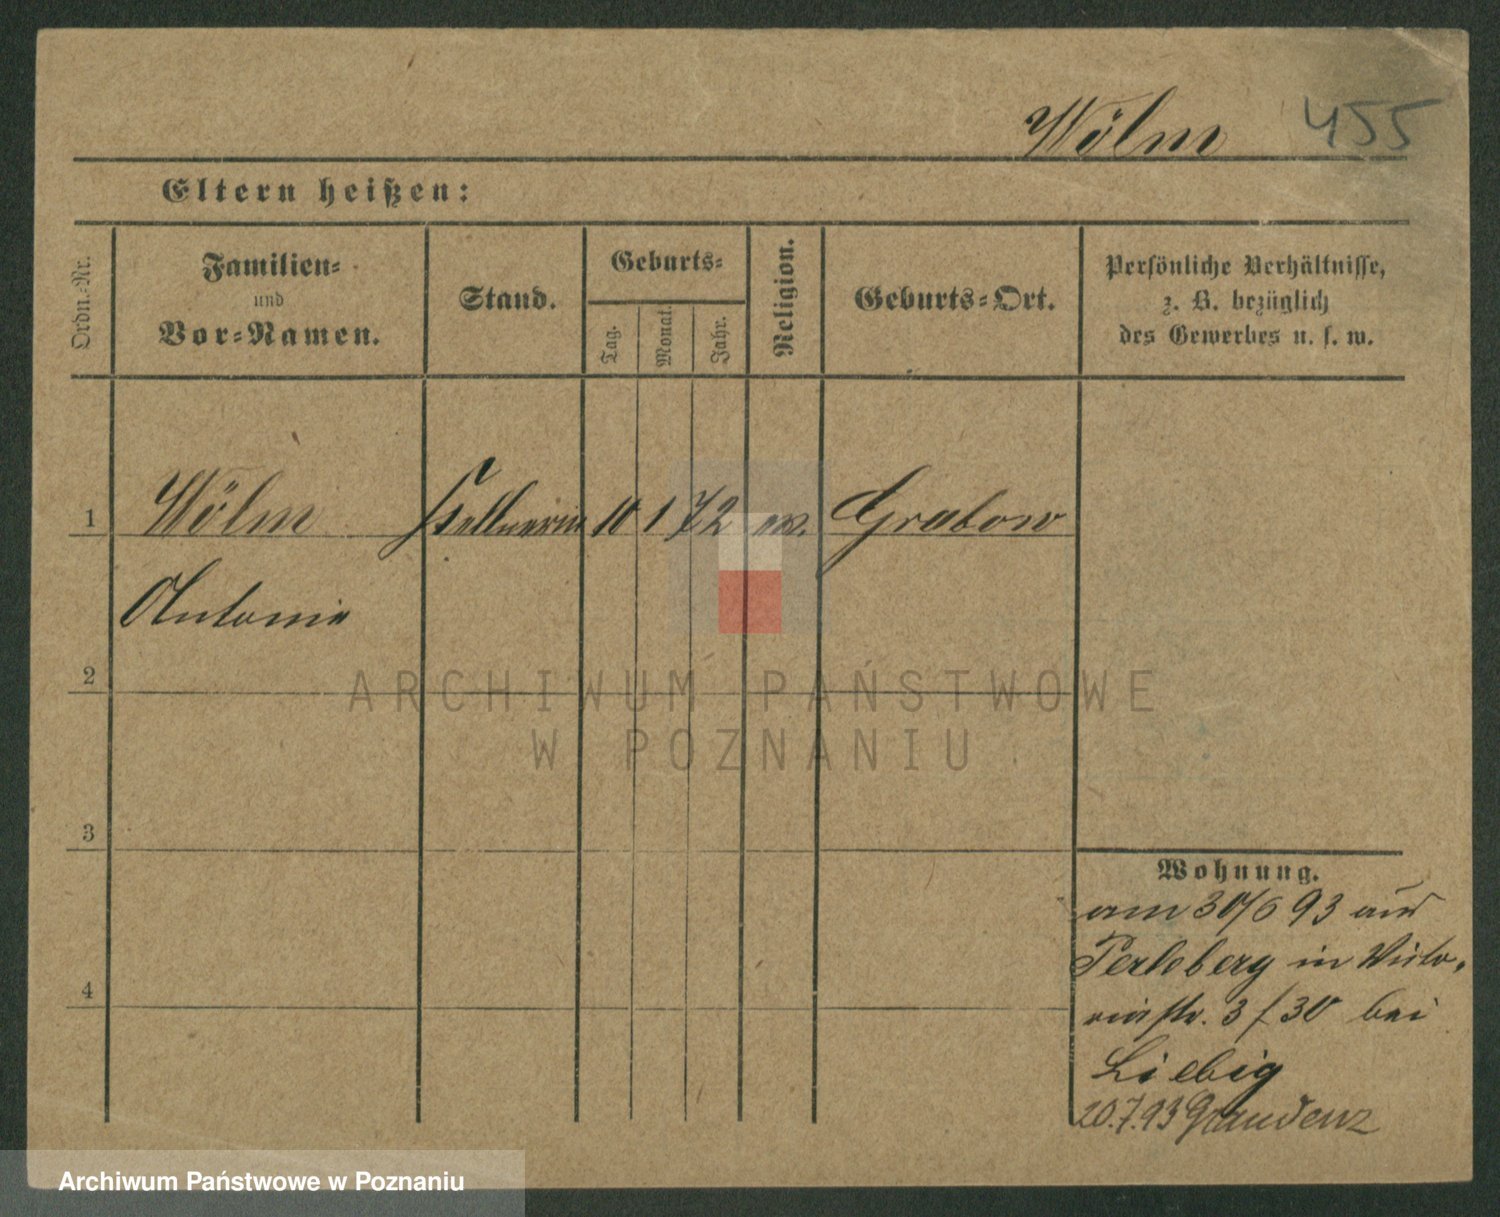 Wölm 455
Eltern heißen:
Ordn.-Nr.
Familien-
und
Vor-Namen.
Stand.
Geburts-
Tag.
Monat.
Jahr.
Religion.
Geburts-Ort.
Persönliche Verhältnisse,
z. B. bezüglich
des Gewerbes u. s. w.
1 Wölm Kellnerin 10 1 72 ev. Grabow
Antonie
2
3
4
Wohnung.
am 30/6 93 aus
Perleberg in Victo-
riastr. 3 / 30 bei
Liebig
20.7.93 Graudenz
ARCHIWUM PAŃSTWOWE
W POZNANIU
Archiwum Państwowe w Poznaniu